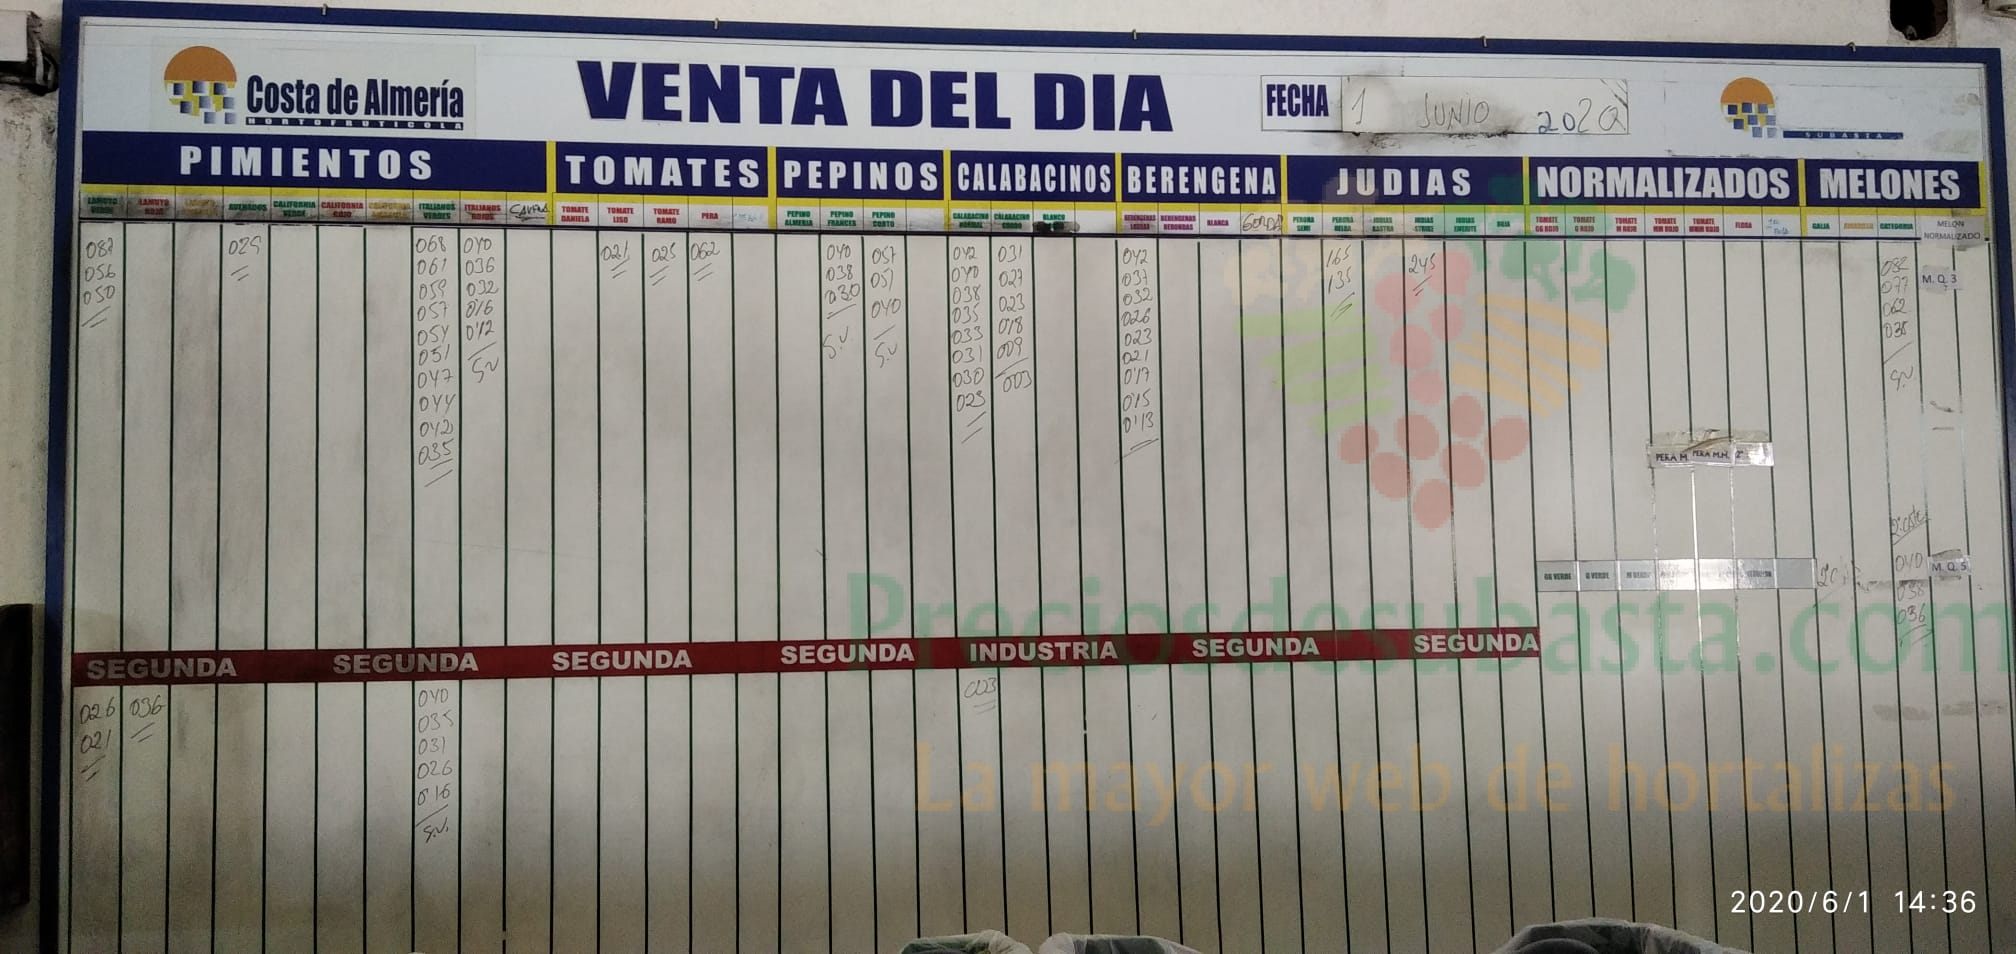 Costa de Almería
HORTOFRUTICOLA
VENTA DEL DIA
FECHA 1 JUNIO 2020
SUBASTA
PIMIENTOS TOMATES PEPINOS CALABACINOS BERENGENA JUDIAS NORMALIZADOS MELONES
LAMUYO VERDE
LAMUYO ROJO
ASURADOS
CALIFORNIA VERDE
CALIFORNIA ROJO
ITALIANOS VERDES
ITALIANOS ROJOS
TOMATE DANIELA
TOMATE LISO
TOMATE RAMO
PERA
PEPINO ALMERIA
PEPINO FRANCES
PEPINO CORTO
CALABACINO NORMAL
CALABACINO GORDO
BLANCO
BERENGENAS LARGAS
BERENGENAS REDONDAS
BLANCA
GORDA
PERONA SEMI
PERONA HELDA
JUDIAS RASTRA
JUDIAS STRIKE
JUDIAS EMERITE
ROJA
TOMATE GG ROJO
TOMATE G ROJO
TOMATE M ROJO
TOMATE MM ROJO
TOMATE MMM ROJO
FLORA
GALIA
AMARILLO
CATEGORIA
MELON NORMALIZADO
082
056
050
025
068
061
059
057
054
051
047
044
042
035
040
036
032
016
012
SV
021
025
062
040
038
030
S.V
057
051
040
S.V
042
040
038
035
033
031
030
023
031
027
023
018
009
003
042
037
032
026
023
021
017
015
013
165
135
245
082
077
062
038
S.V.
M. Q. 3
PERA M. PERA M.M. 2ª
040
038
036
M. Q. 5
GG VERDE G VERDE M VERDE
SEGUNDA SEGUNDA SEGUNDA SEGUNDA INDUSTRIA SEGUNDA SEGUNDA
026
021
036
040
035
031
026
016
S.V.
023
Preciosdesubasta.com
La mayor web de hortalizas
2020/6/1 14:36